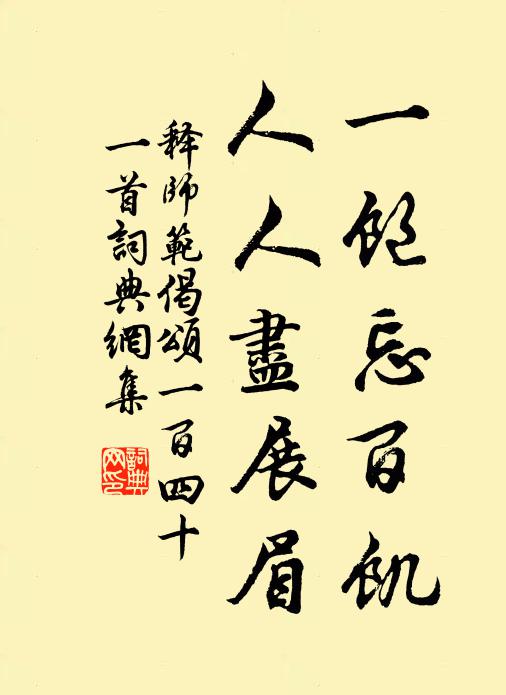 一飽忘百飢
人人盡展眉
释師範偈頌一百四十
一首詞典網集
詞典
网印